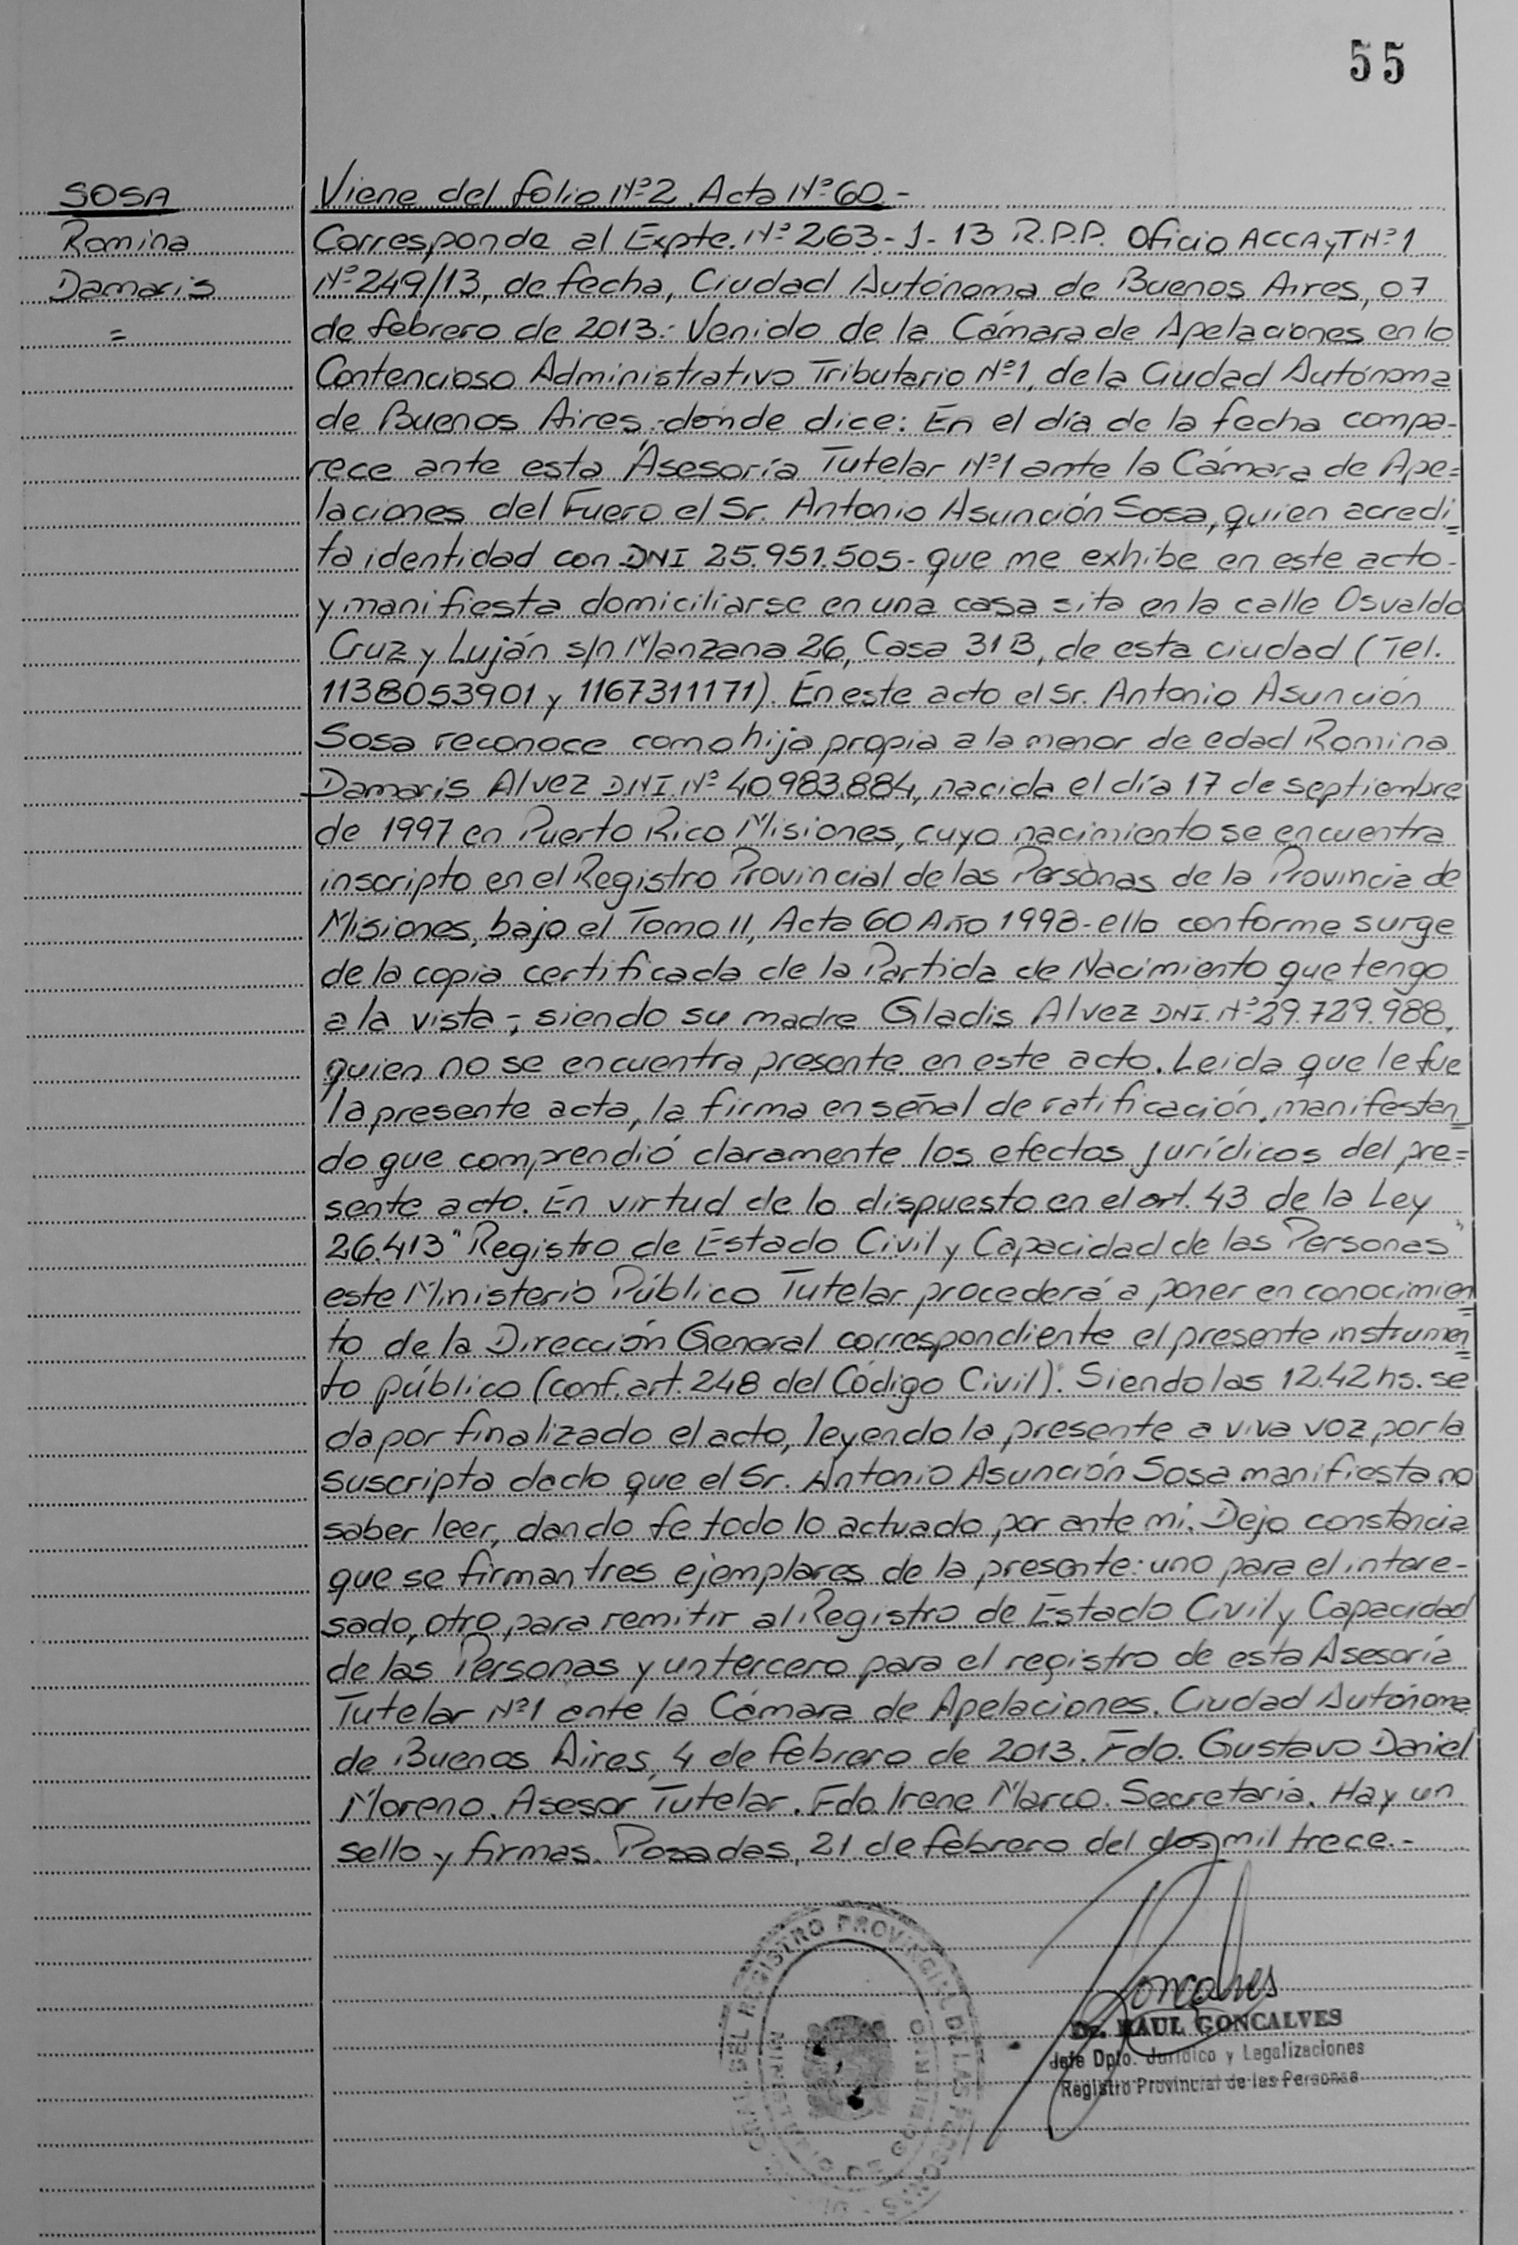 55
SOSA
Romina
Damaris
=
Viene del folio Nº2. Acta Nº60-
Corresponde al Expte. Nº 263-J-13 R.P.P. Oficio ACCAyT Nº1
Nº249/13, de fecha, Ciudad Autónoma de Buenos Aires, 07
de febrero de 2013.: Venido de la Cámara de Apelaciones en lo
Contencioso Administrativo Tributario Nº1, de la Ciudad Autónoma
de Buenos Aires.-donde dice: En el día de la fecha compa-
rece ante esta Asesoría Tutelar Nº1 ante la Cámara de Ape=
laciones del Fuero el Sr. Antonio Asunción Sosa, quien acredi=
ta identidad con DNI 25.951.505- que me exhibe en este acto-
y manifiesta domiciliarse en una casa sita en la calle Osvaldo
Cruz y Luján s/n Manzana 26, Casa 31 B, de esta ciudad (Tel.
1138053901 y 1167311171). En este acto el Sr. Antonio Asunción
Sosa reconoce como hija propia a la menor de edad Romina
Damaris Alvez D.N.I. Nº 40.983.884, nacida el día 17 de septiembre
de 1997 en Puerto Rico Misiones, cuyo nacimiento se encuentra
inscripto en el Registro Provincial de las Personas de la Provincia de
Misiones, bajo el Tomo II, Acta 60 Año 1998-ello conforme surge
de la copia certificada de la Partida de Nacimiento que tengo
a la vista-; siendo su madre Gladis Alvez DNI. Nº 29.729.988,
quien no se encuentra presente en este acto. Leida que le fue
la presente acta, la firma en señal de ratificación, manifestan=
do que comprendió claramente los efectos jurídicos del pre=
sente acto. En virtud de lo dispuesto en el art. 43 de la Ley
26.413 "Registro de Estado Civil y Capacidad de las Personas"
este Ministerio Público Tutelar procederá a poner en conocimien=
to de la Dirección General correspondiente el presente instrumen=
to público (conf. art. 248 del Código Civil). Siendo las 12.42 hs. se
da por finalizado el acto, leyendo la presente a viva voz por la
suscripta dado que el Sr. Antonio Asunción Sosa manifiesta no
saber leer, dando fe todo lo actuado por ante mi. Dejo constancia
que se firman tres ejemplares de la presente: uno para el intere-
sado, otro para remitir al Registro de Estado Civil y Capacidad
de las Personas y un tercero para el registro de esta Asesoría
Tutelar Nº1 ante la Cámara de Apelaciones. Ciudad Autónoma
de Buenos Aires, 4 de febrero de 2013. Fdo. Gustavo Daniel
Moreno. Asesor Tutelar. Fdo. Irene Marco. Secretaria. Hay un
sello y firmas. Posadas, 21 de febrero del dos mil trece.-
REGISTRO PROVINCIAL DE LAS PERSONAS
MINISTERIO DE GOBIERNO
Goncalves
Dr. RAUL GONCALVES
Jefe Dpto. Jurídico y Legalizaciones
Registro Provincial de las Personas